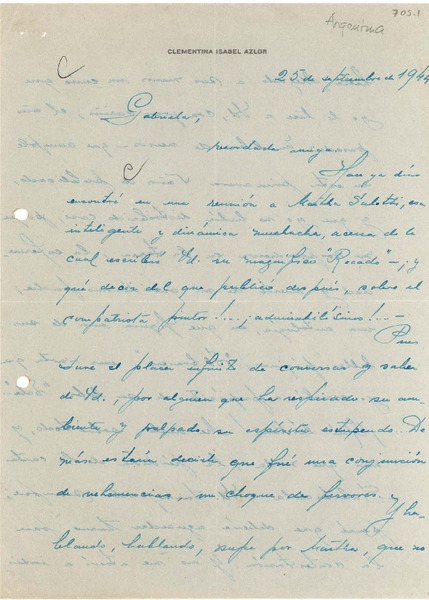 Argentina
705.1
CLEMENTINA ISABEL AZLOR
25 de septiembre de 1944
Gabriela,
recordada amiga:
Hace ya días
encontré en una reunión a Martha Salotti, esa
inteligente y dinámica muchacha, acerca de la
cual escribió Vd. su magnífico "Recado" -¡y
qué decir del que publicó después, sobre el
compatriota pintor!...¡admirabilísimo! -
Pues
tuve el placer infinito de conversar y saber
de Vd., por alguien que ha respirado su am-
biente y palpado su espíritu estupendo. De
más estaría decirle que fué una conjunción
de vehemencias, un choque de fervores.
Y ha-
blando, hablando, supe por Martha, que no